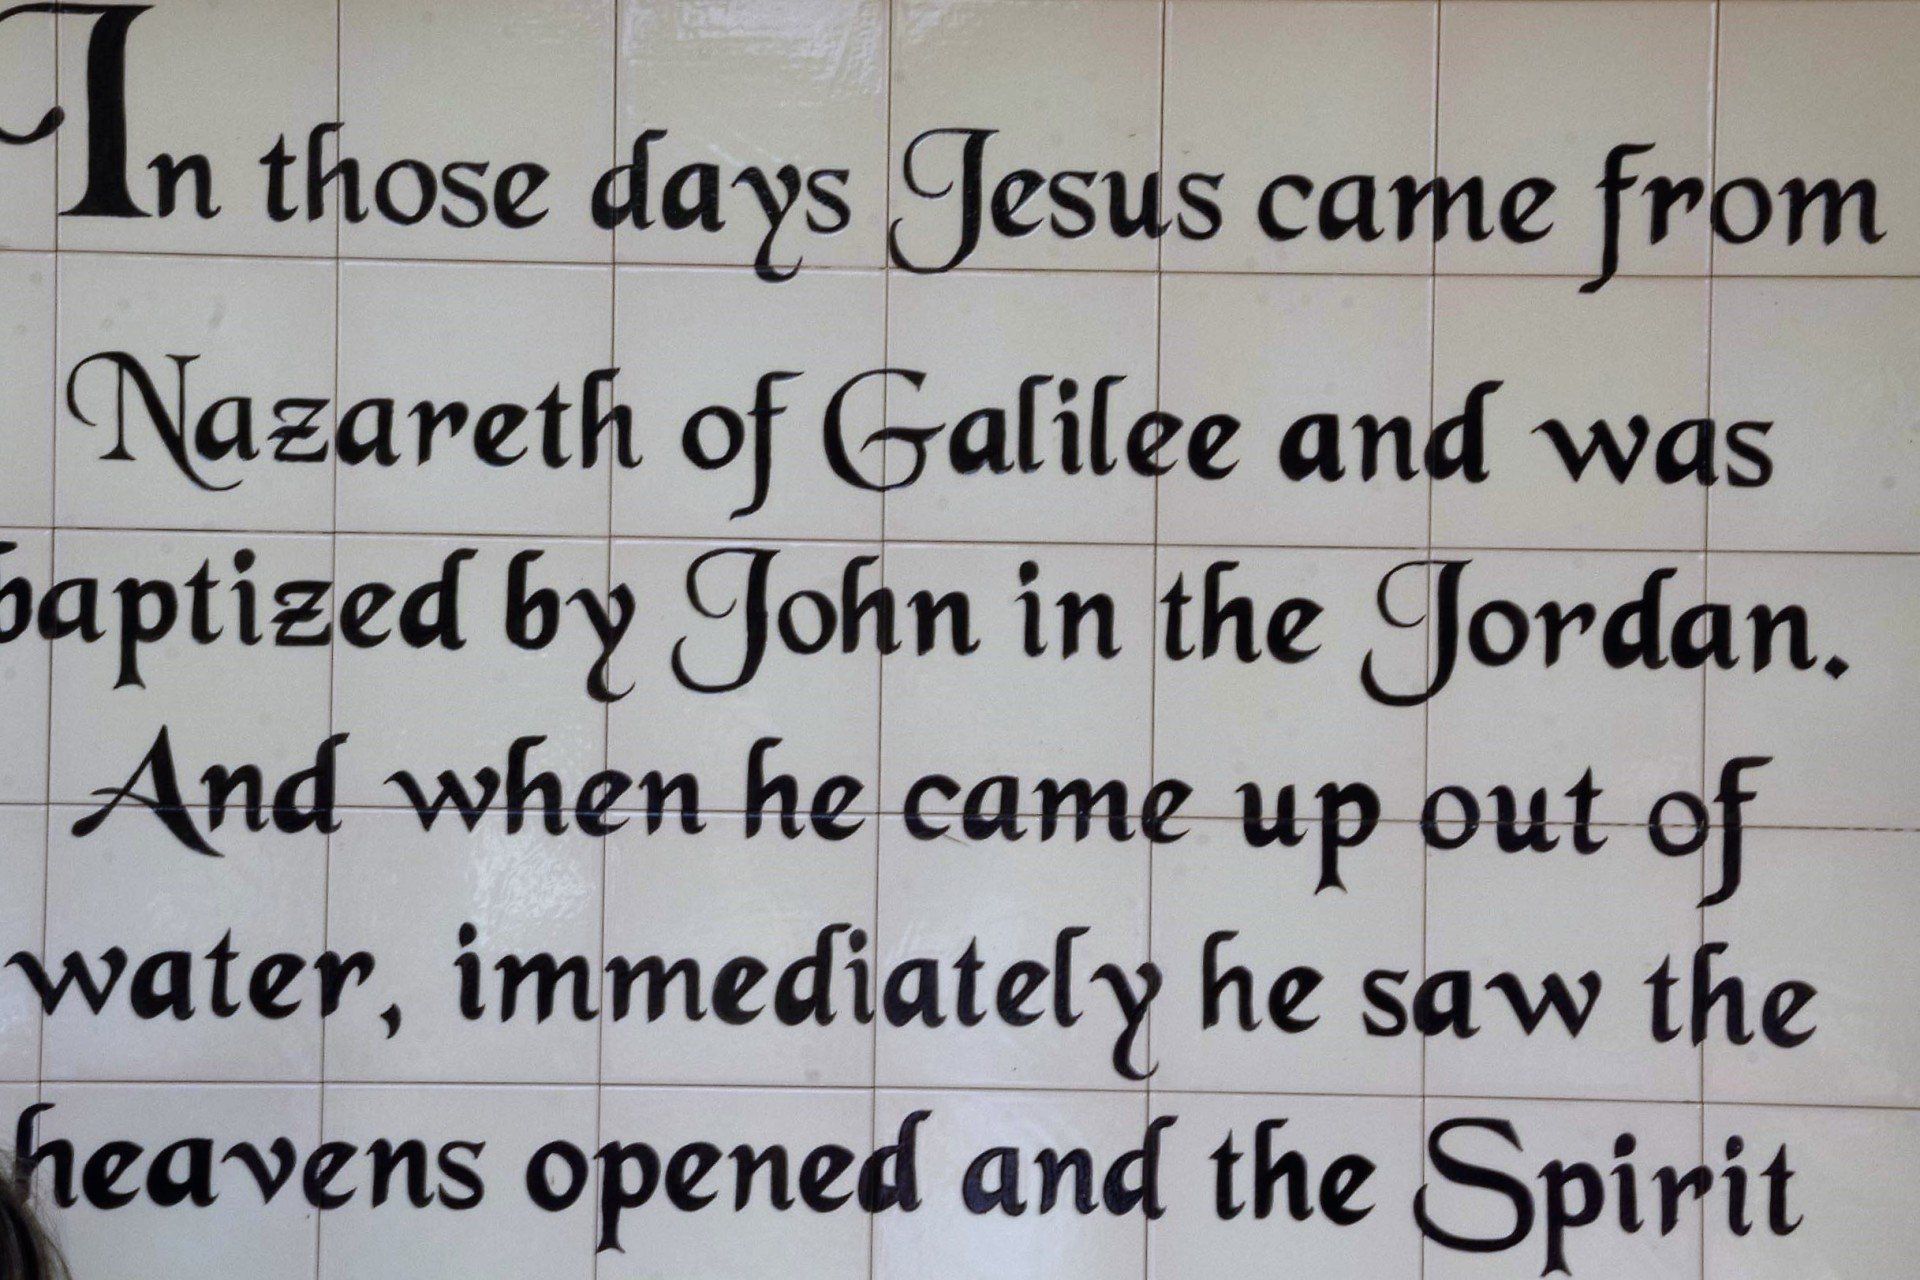 In those days Jesus came from
Nazareth of Galilee and was
baptized by John in the Jordan.
And when he came up out of
water, immediately he saw the
heavens opened and the Spirit